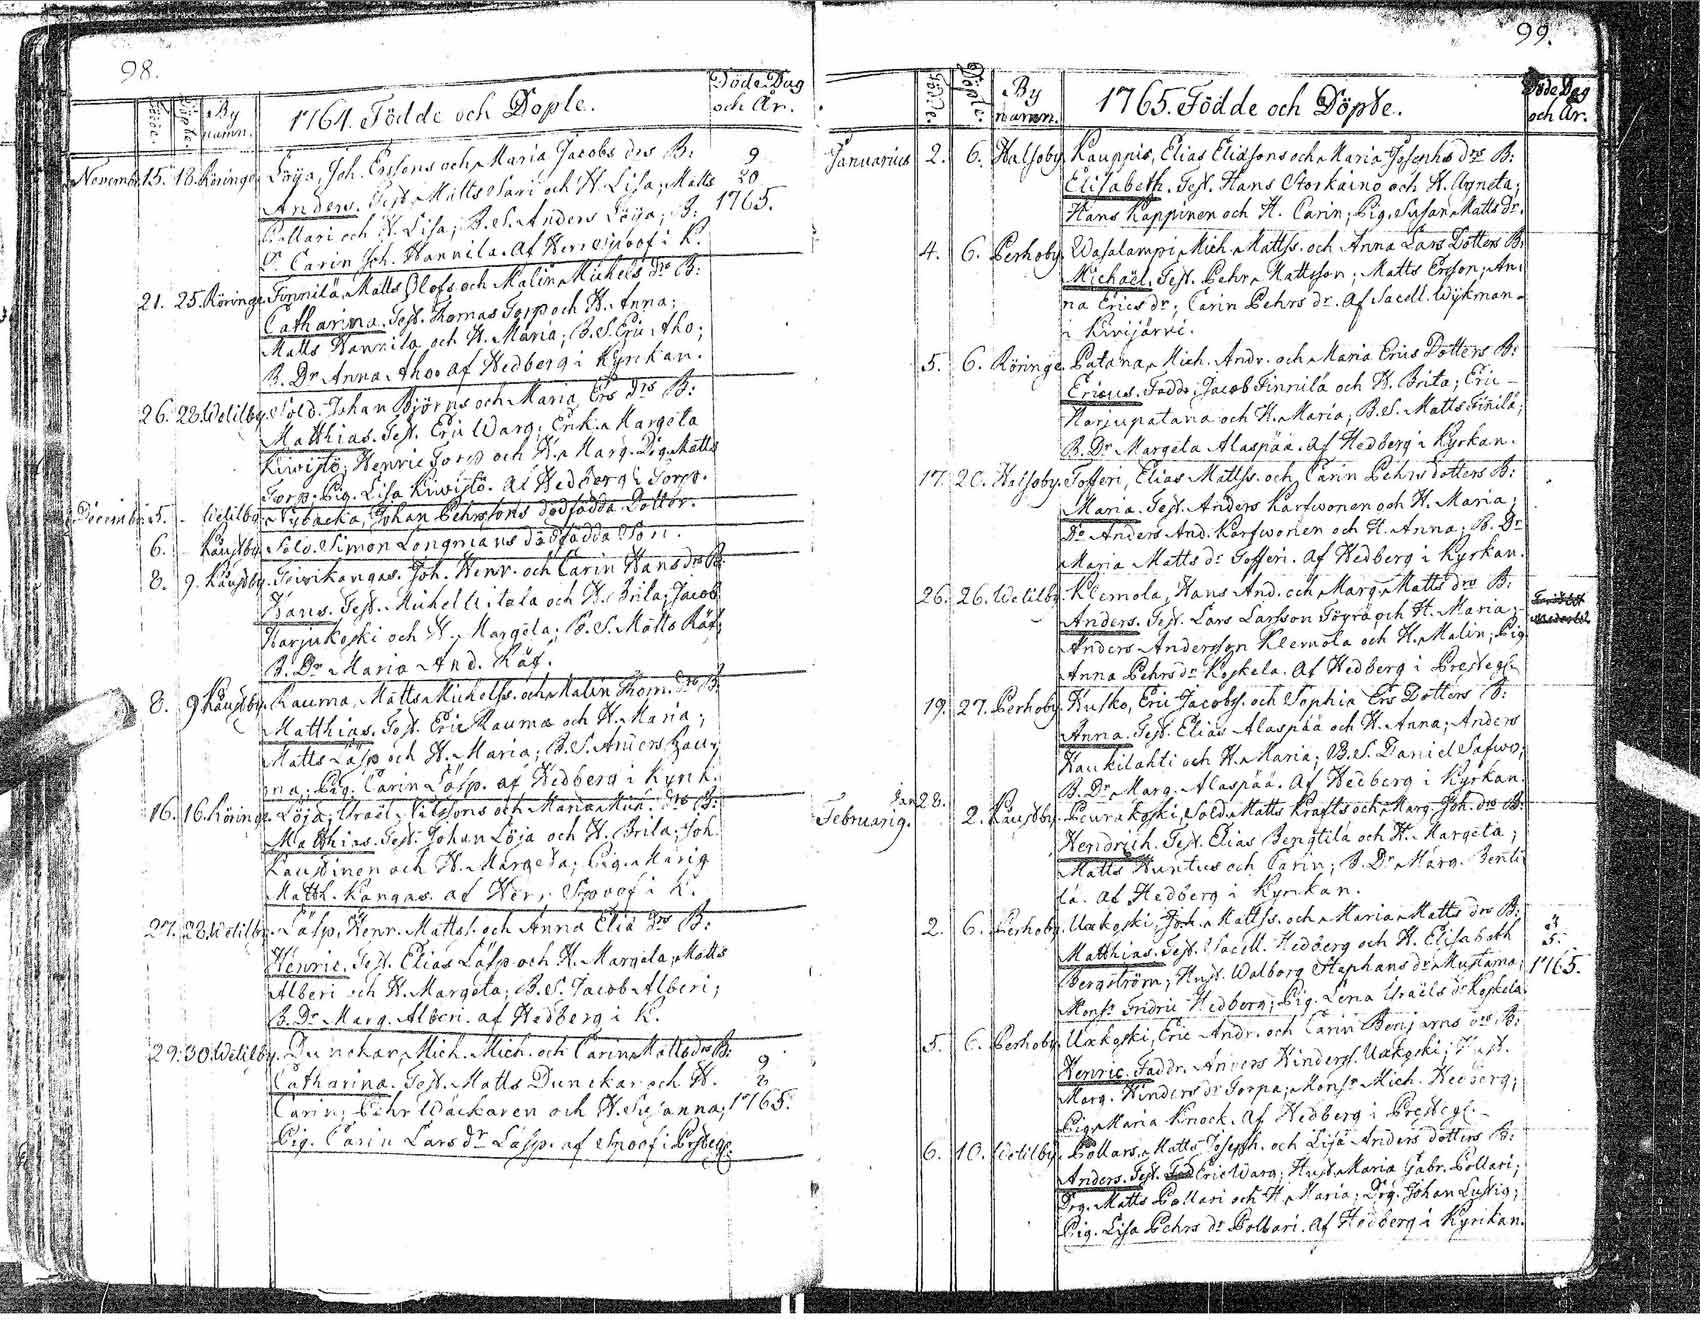 98.
Födde.
Döpte.
By namn.
1764. Födde och Döpte.
Döde Dag och År.
Novembr. 15. 18. Röringe. Löija, Joh. Erssons och Maria Jacobs drs B: 9
Anders. Test. Matts Sari och H. Lisa; Matts 20
Pollari och H. Lisa; B.S. Anders Löija; B: 1765.
Dr Carin Joh. Hannila. Af Herr Spoof i K.
21. 25. Röringe. Finnilä, Matts Olofs och Malin Michels drs B:
Catharina. Test. Thomas Torp och H. Anna;
Matts Hannila och H. Maria; B.S. Eric Aho;
B. Dr Anna Aho. Af Hedberg i Kyrckan.
26. 28. Wetilby. Sold. Johan Björns och Maria Ers drs B:
Matthias. Test. Eric Warg; Enk. Margeta
Kiwistö; Henric Torp och H. Marg. Pig. Matts
Torp; Pig. Lisa Kiwistö. Af Hedberg i Torp.
Decembr. 5. - Wetilby. Nybacka, Johan Pehrssons dödfödda Dotter.
6. - Kaustby. Sold. Simon Longmans dödfödda Son.
8. 9. Kaustby. Toivikangas. Joh. Henr. och Carin Hans drs B:
Hans. Test. Michell Witala och H. Brita; Jacob
Harjukoski och H. Margeta; B.S. Matts Räf;
B. Dr Maria And. Räf.
8. 9. Kaustby. Rauma, Matts Michelss. och Malin Thom. drs B:
Matthias. Test. Eric Rauma och H. Maria;
Matts Läsp och H. Maria; B.S. Anders Rau-
ma; Pig. Carin Läsp. af Hedberg i Kyrk.
16. 16. Röringe. Löja, Israel Nilssons och Maria Mich. drs B:
Matthias. Test. Johan Löja och H. Brita; Joh.
Kaustinen och H. Margeta; Pig. Maria
Matth. Kangas. af Herr Spoof i K.
27. 28. Wetilby. Läsp, Henr. Mattss. och Anna Elia drs B:
Henric. Test. Elias Läsp och H. Margeta; Matts
Alberi och H. Margeta; B.S. Jacob Alberi;
B. Dr Marg. Alberi. af Hedberg i K.
29. 30. Wetilby. Dunckar, Mich. Mich. och Carin Matts drs B:
Catharina. Test. Matts Dunckar och H. 9
Carin; Pehr Wäckaren och H. Susanna; 1765.
Pig. Carin Lars dr Läsp. af Spoof i Prsteg.
99.
Födde.
Döpte.
By namn.
1765. Födde och Döpte.
Döde Dag och År.
Januarius 2. 6. Halsoby. Kauppis, Elias Eliassons och Maria Josephs drs B:
Elisabeth. Test. Hans Storkaino och H. Agneta;
Hans Kappinen och H. Carin; Pig. Susan Matts dr.
4. 6. Perhoby. Wasalampi, Mich. Mattss. och Anna Lars Dotters B:
Michaël. Test. Pehr Mattsson; Matts Ersson; An-
na Erics dr; Carin Pehrs dr. Af Sacell. Wijkman
i Kivijärvi.
5. 6. Röringe. Patana, Mich. Andr. och Maria Erics Dotters B:
Ericus. Faddr; Jacob Finnilä och H. Brita; Eric
Harjupatana och H. Maria; B.S. Matts Finnilä;
B. Dr Margeta Alaspää. af Hedberg i Kyrkan.
17. 20. Halsoby. Tofferi, Elias Mattss. och Carin Pehrs dotters B:
Maria. Test. Anders Karfwonen och H. Maria;
Dr Anders And. Karfwonen och H. Anna; B. Dr
Maria Matts dr Tofferi. Af Hedberg i Kyrkan.
26. 26. Wetilby. Klemola, Hans And. och Marg. Matts drs B:
Anders. Test. Lars Larsson Töyrä och H. Maria;
Anders Andersson Klemola och H. Malin; Pig.
Anna Pehrs dr Koskela. Af Hedberg i Prestegl.
19. 27. Perhoby. Kusko, Eric Jacobss. och Sophia Ers Dotters B:
Anna. Test. Elias Alaspää och H. Anna; Anders
Haukilahti och H. Maria; B.S. Daniel Safwo;
B. Dr Marg. Alaspää. Af Hedberg i Kyrkan.
Jan 28.
Februarig. 2. Kaustby. Peurakoski, Sold. Matts Krafts och Marg. Joh. drs B:
Hendrich. Test. Elias Bengtila och H. Margeta;
Matts Huntus och Carin; B. Dr Marg. Benti-
la. Af Hedberg i Kyrckan.
2. 6. Perhoby. Uckoski, Joh. Mattss. och Maria Matts drs B: 3
Matthias. Test. Sacell. Hedberg och H. Elisabeth 5.
Bergström; Hust. Walborg Staphans dr Mustama; 1765.
Monsr Fridric Hedberg; Pig. Lena Israels dr Koskela.
5. 6. Perhoby. Uckoski, Eric Andr. och Carin Benjamins drs B:
Henric. Faddr. Anders Hinderss. Uckoski; Hust.
Marg. Hinders dr Torpa; Monsr Mich. Hedberg;
Pig. Maria Knock. Af Hedberg i Prestegl.
6. 10. Wetilby. Pollars, Matts Joseph. och Lisa Anders dotters B:
Anders. Test. Eric Warg; Hust. Maria Gabr. Pollari;
Drg. Matts Pollari och H. Maria; Drg. Johan Lustig;
Pig. Lisa Pehrs dr Pollari. Af Hedberg i Kyrckan.